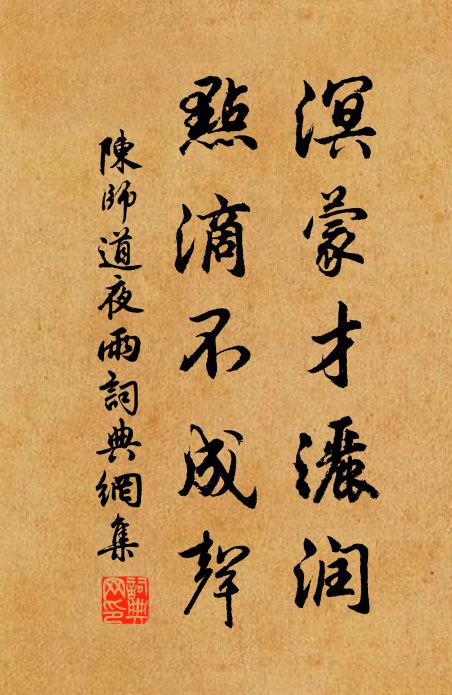 溟蒙才灑润
點滴不成聲
陳師道夜雨詞典網集
詞典
网印